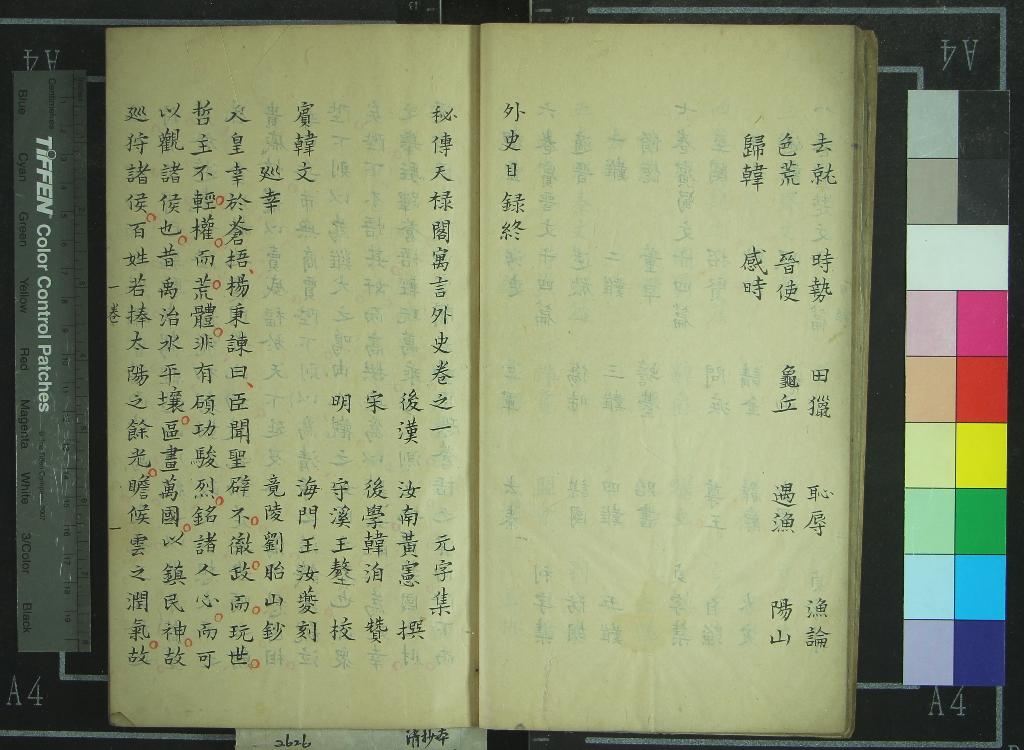 去就 時勢 田獵 恥辱 漁論
色荒 晉使 龜丘 遇漁 陽山
歸韓 感時
外史目録終
秘傳天禄閣寓言外史卷之一 元字集
後漢 汝南黃憲 撰
宋 後學韓洎 贊
明 守溪王鏊 校
海門王汝夔 刻
竟陵劉昭山 鈔
賓韓文
廵幸
天皇幸於蒼捂楊秉諫曰臣聞聖辟不徹政而玩世
哲主不輕權而荒體非有碩功駿烈銘諸人心而可
以觀諸侯也昔禹治水平壤區畫萬國以鎮民神故
廵狩諸侯百姓若捧太陽之餘光瞻候雲之潤氣故
一卷
一
2626
清抄本
A4
A4
A4
A4
TIFFEN Color Control Patches
Centimetres
Blue
Cyan
Green
Yellow
Red
Magenta
White
3/Color
Black